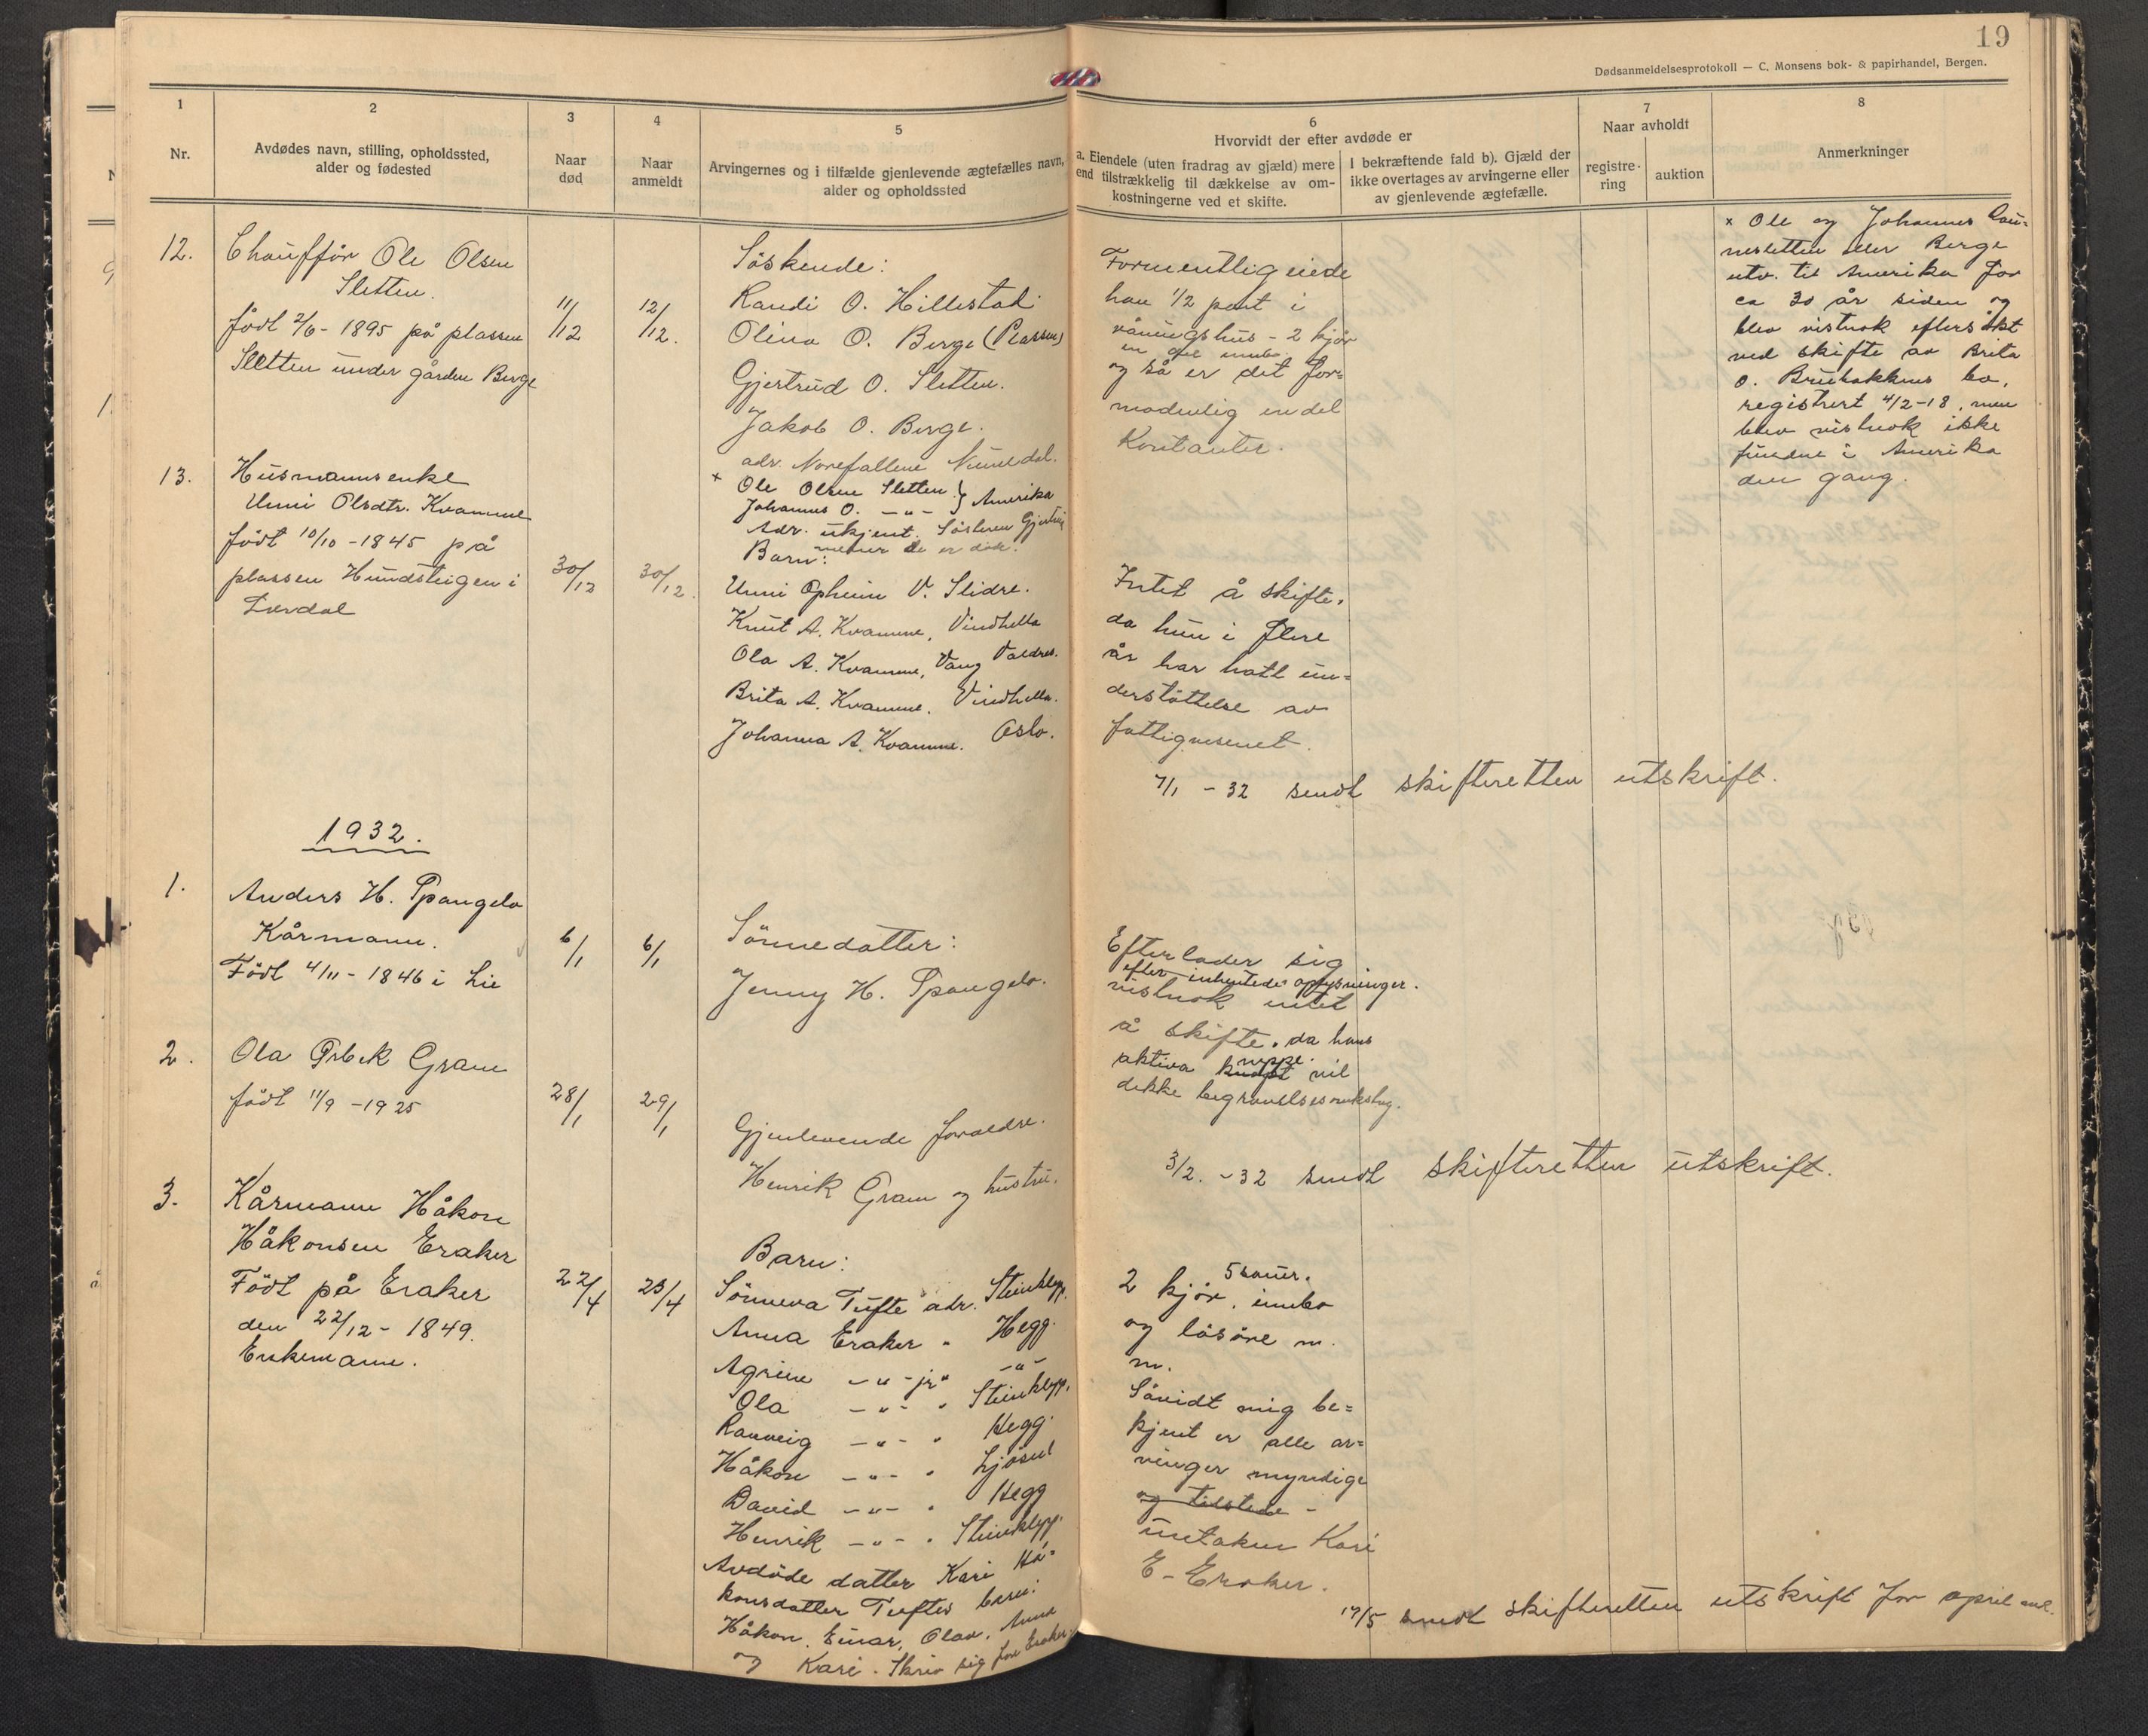 19
Dødsanmeldelsesprotokoll — C. Monsens bok- & papirhandel, Bergen.
1
Nr.
2
Avdødes navn, stilling, opholdssted,
alder og fødested
3
Naar
død
4
Naar
anmeldt
5
Arvingernes og i tilfælde gjenlevende ægtefælles navn,
alder og opholdssted
6
Hvorvidt der efter avdøde er
a. Eiendele (uten fradrag av gjæld) mere
end tilstrækkelig til dækkelse av om-
kostningerne ved et skifte.
I bekræftende fald b). Gjæld der
ikke overtages av arvingerne eller
av gjenlevende ægtefælle.
7
Naar avholdt
registre-
ring
auktion
8
Anmerkninger
12.
Chauffør Ole Olsen
Sletten.
født 2/6 - 1895 på plassen
Sletten under gården Berge
11/12
12/12.
Søskende:
Randi O. Hillestad
Olina O. Berge (Plassen)
Gjertrud O. Sletten.
Jakob O. Berge.
adr. Norefallene Numedal.
x Ole Olsen Sletten } Amerika
Johannes O. -"-
Adr. ukjent. Søsteren
mener de er døde.
Formentlig eiede
han 1/2 part i
våningshus - 2 kjør
en del innbo.
og så er det for=
modenlig endel
Kontanter.
x Ole og Johannes
nesletten eller Berge
utv. til Amerika for
ca 30 år siden og
blev vistnok eftersøkt
ved skifte av Brita
O. bo,
registrert 4/2-18, men
blev vistnok ikke
fundne i Amerika
den gang.
13.
Husmannsenke
Unni Olsdtr. Kvamme
født 10/10 - 1845 på
plassen Hundsteigen i
Lærdal
30/12
30/12.
Barn:
Unni Opheim V. Slidre.
Knut A. Kvamme, Vindhella
Ola A. Kvamme, Vang Valdres.
Brita A. Kvamme, Vindhella.
Johanna A. Kvamme. Oslo.
Intet å skifte,
da hun i flere
år har hatt un=
derstøttelse av
fattigvesenet.
7/1 - 32 sendt skifteretten utskrift.
1932.
1.
Anders H. Spangelo
Kårmann.
Født 4/11 - 1846 i Lie
6/1
6/1
Sønnedatter:
Jenny H. Spangelo.
Efterlader sig
efter inhentede oplysninger.
vistnok intet
å skifte, da hans
neppe
aktiva vil
dekke begravelsesomkstng.
2.
Ola Gram
født 11/9 - 1925
28/1
29/1
Gjenlevende foreldre.
Henrik Gram og hustru.
3/2. -32 sendt skifteretten utskrift.
3.
Kårmann Håkon
Håkonsen Eraker
Født på Eraker
den 22/12 - 1849.
Enkemann.
22/4
23/4
Barn:
Sønneva Tufte adr. Steinklepp.
Anna Eraker " Hegg.
Agrine -"- jr " -"-
Ola -"- " Steinklepp.
Ranveig -"- " Hegg.
Håkon -"- " Ljøsne
David -"- " Hegg
Henrik -"- " Steinklepp.
Avdøde datter Kari Hå=
konsdatter Tuftes barn:
Håkon, Einar, Olav, Anna
og Kari. Skriv sig for Eraker.
5 sauer.
2 kjør, innbo
og løsøre m.
m.
Såvidt mig be=
kjent er alle ar=
vinger myndige
og tilstede -
untaken Kari
E- Eraker.
17/5 sendt skifteretten utskrift for april